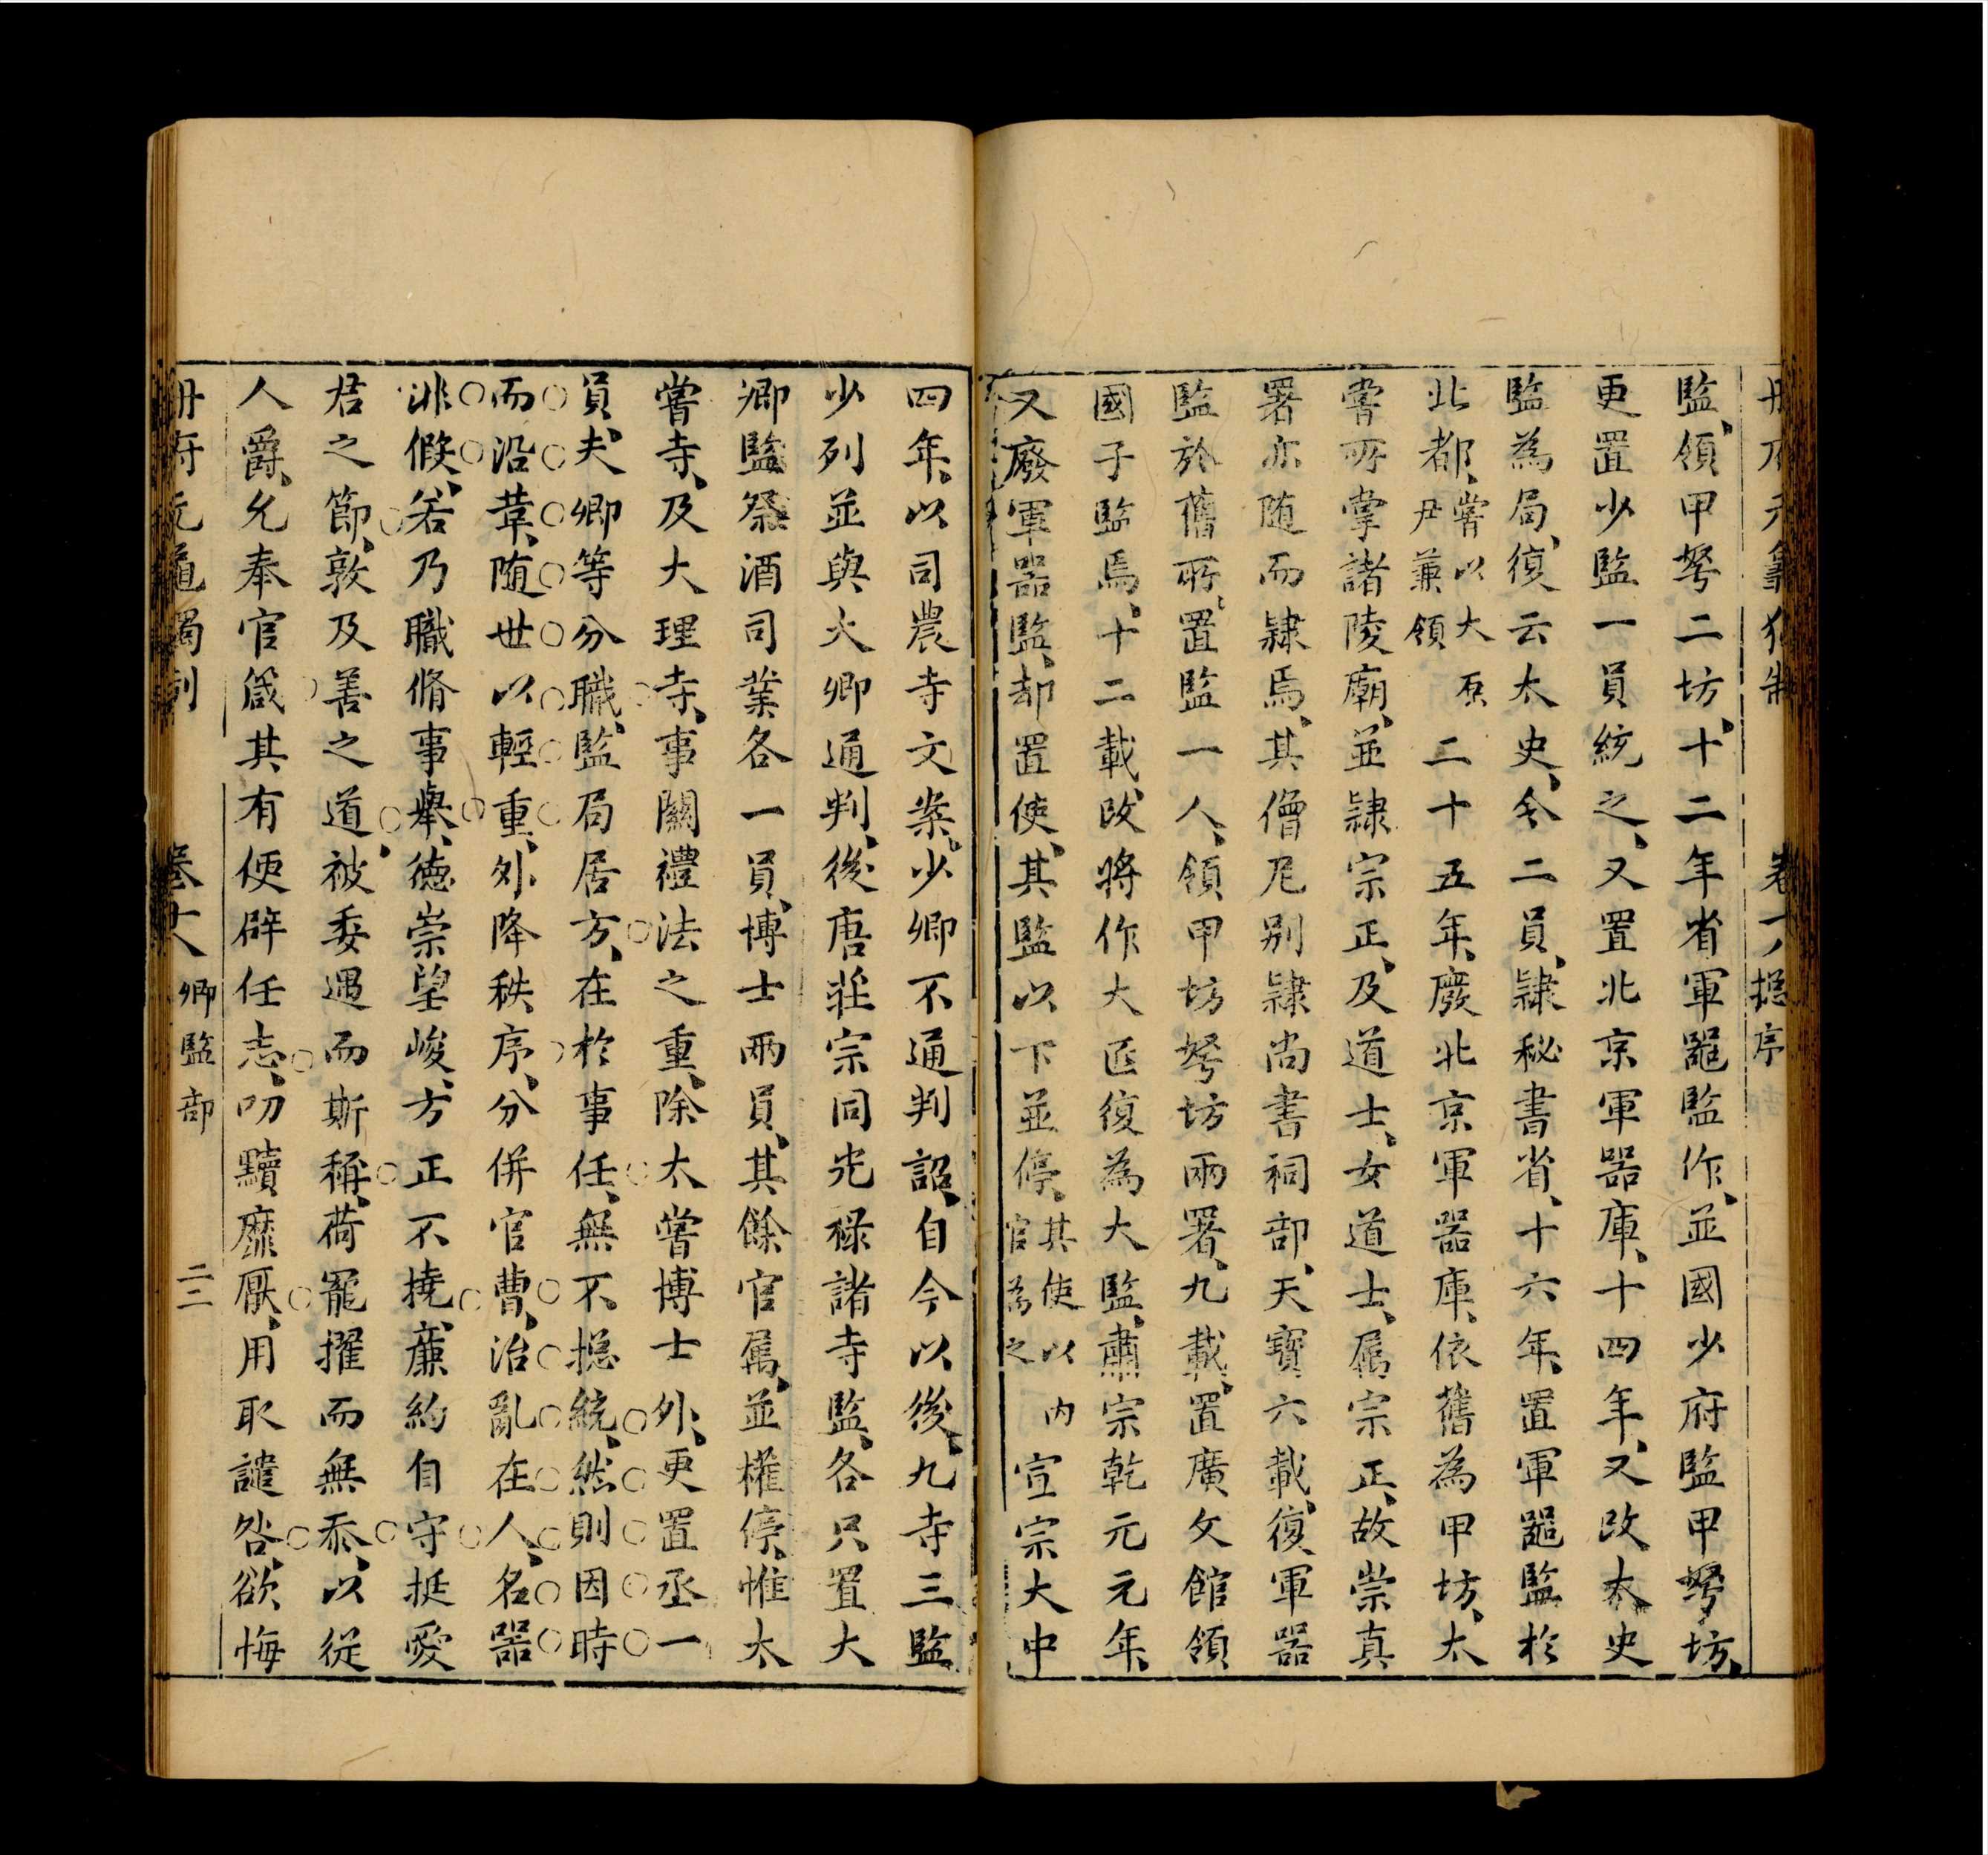 冊府元龜獨制 卷十八 總序
監、領甲弩二坊、十二年省軍噐監作、並國少府監甲弩坊、
更置少監一員統之、又置北京軍器庫、十四年、又改太史
監為局、復云太史、令二員、隷秘書省、十六年、置軍噐監於
北都、嘗以大原尹兼領二十五年、廢北京軍器庫、依舊為甲坊、太
嘗所掌諸陵廟、並隷宗正、及道士、女道士、屬宗正、故崇真
署亦随而隷焉、其僧尼别隷尚書祠部、天寶六載、復軍器
監於舊所、置監一人、領甲坊弩坊兩署、九載、置廣文館領
國子監焉、十二載、改將作大匠復為大監、肅宗乾元元年、
又廢軍器監、却置使、其監以下並停、其使以内官為之宣宗大中
四年、以司農寺文案、少卿不通判詔、自今以後、九寺三監
少列並與大卿通判、後唐莊宗同光禄諸寺監、各只置大
卿監祭酒司業各一員、博士兩員、其餘官屬、並權停、惟太
嘗寺、及大理寺、事關禮法之重、除太嘗博士外、更置丞一
員、夫卿等分職、監局居方、在於事任、無不揔統、然則因時
而沿革、随世以輕重、外降秩序、分併官曹、治亂在人、名器
非假、若乃職脩事舉、徳崇望峻、方正不撓、廉約自守挺愛
君之節、敦及善之道、被委遇而斯稱、荷寵擢而無忝、以従
人爵、允奉官箴其有便辟任志、叨黷靡厭、用取譴咎、欲悔
冊府元龜獨制 卷十八 卿監部 二三